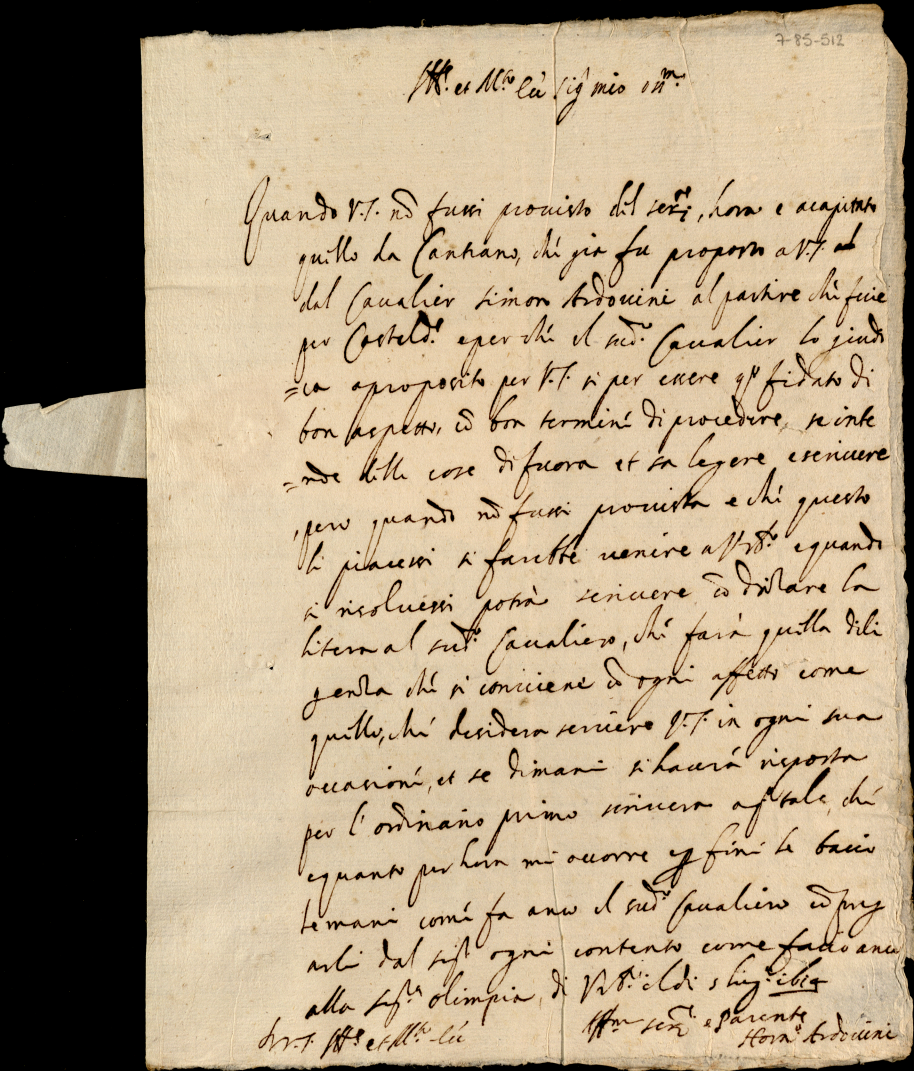 7-85-512
et sig mio
Quando V.S. nō fussi provisto del ser.re, hora e acapitato
quello da Cantiano, che gia fu proposto a V.S.
dal Cavalier Simon Ardovini al partire che fece
per Casteld.e e perche il sud.o Cavalier lo giudi
=ca aproposito per V.S. si per essere fidato di
bon aspetto, cō bon termini di procedere, se inte
=nde delle cose di fuora et sa legere e scrivere
, pero quando nō fussi provista e che questo
li piacessi si farebbe venire e quando
si risolvessi potrà scrivere, la
litera al sud.o Cavaliero, che farà quella dili
genza che si conviene cō ogni affetto come
quello, che desidera servire V.S. in ogni sua
occasione, et se dimani si haverà risposta
per l'ordinario primo scrivera che
e quanto per hora mi occorre e fine le bacio
le mani come fa anco il sud.o Cavaliero cō preg
arli dal ogni contento come faccio anco
alla olimpia, di il di
V.S. et
ser.re e Parente
Ardovini